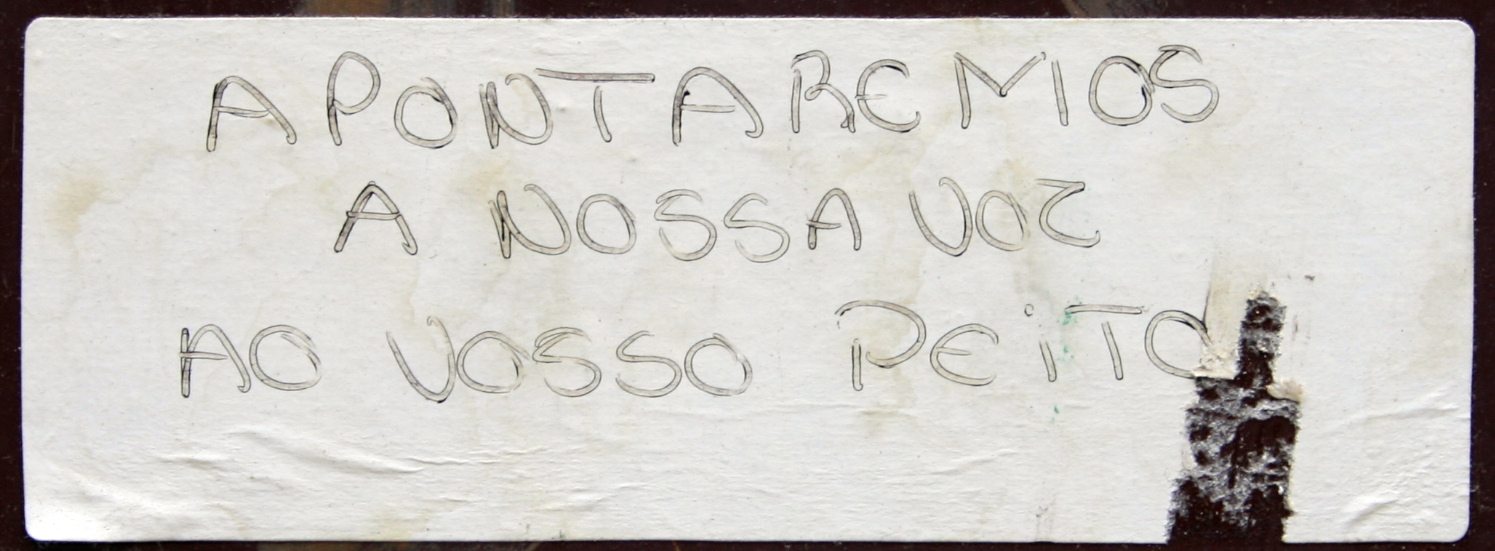 APONTAREMOS
A NOSSA VOZ
AO VOSSO PEiTO